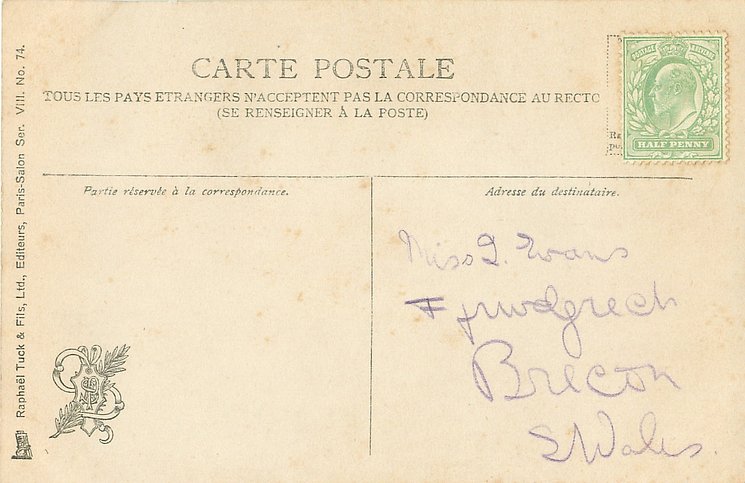 CARTE POSTALE
TOUS LES PAYS ETRANGERS N'ACCEPTENT PAS LA CORRESPONDANCE AU RECTO
(SE RENSEIGNER À LA POSTE)
POSTAGE REVENUE
HALF PENNY
Partie réservée à la correspondance.
Adresse du destinataire.
Miss Q. Evans
Ffrwdgrech
Brecon
S Wales.
Raphaël Tuck & Fils, Ltd., Editeurs, Paris-Salon Ser. VIII. No. 74.